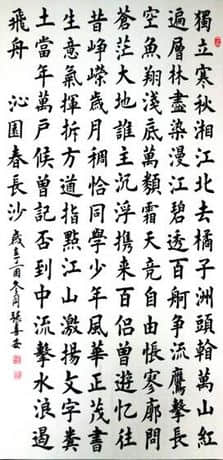 獨立寒秋湘江北去橘子洲頭看萬山紅
遍層林盡染漫江碧透百舸爭流鷹擊長
空魚翔淺底萬類霜天競自由悵寥廓問
蒼茫大地誰主沉浮携來百侣曾遊憶往
昔崢嶸歲月稠恰同學少年風華正茂書
生意氣揮斥方遒指點江山激揚文字糞
土當年萬户侯曾記否到中流擊水浪遏
飛舟 沁園春長沙 歲在丁酉冬月張喜安